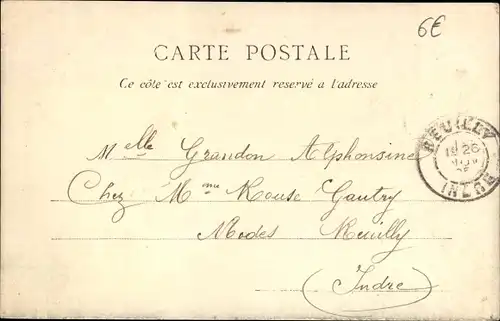 6€
CARTE POSTALE
Ce côte est exclusivement reservé a l'adresse
Melle Grandon Alphonsine
Chez Mme Rouse Gautry
Modes Reuilly
(Indre)
REUILLY
26
INDRE